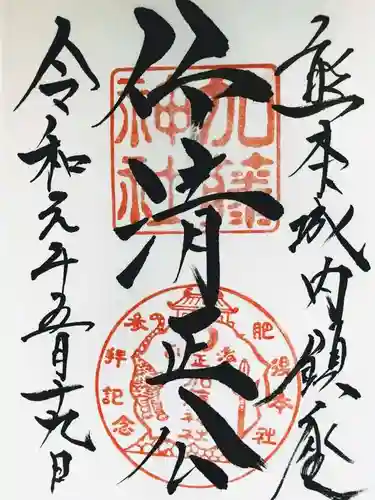 熊本城内鎮座
仰清正公
令和元年五月十九日
加藤
神社
肥後本社
参拝記念